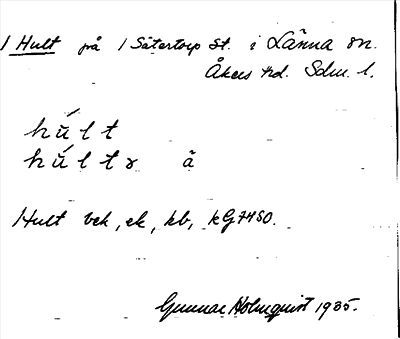 1 Hult på 1 Sätertorp st. i Länna sn.
Åkers hd. Sdm. l.
hú̆lt
hú̆ltr ä̆
Hult bek, ek, hb, kG 7450.
Gunnar Holmquist 1935.